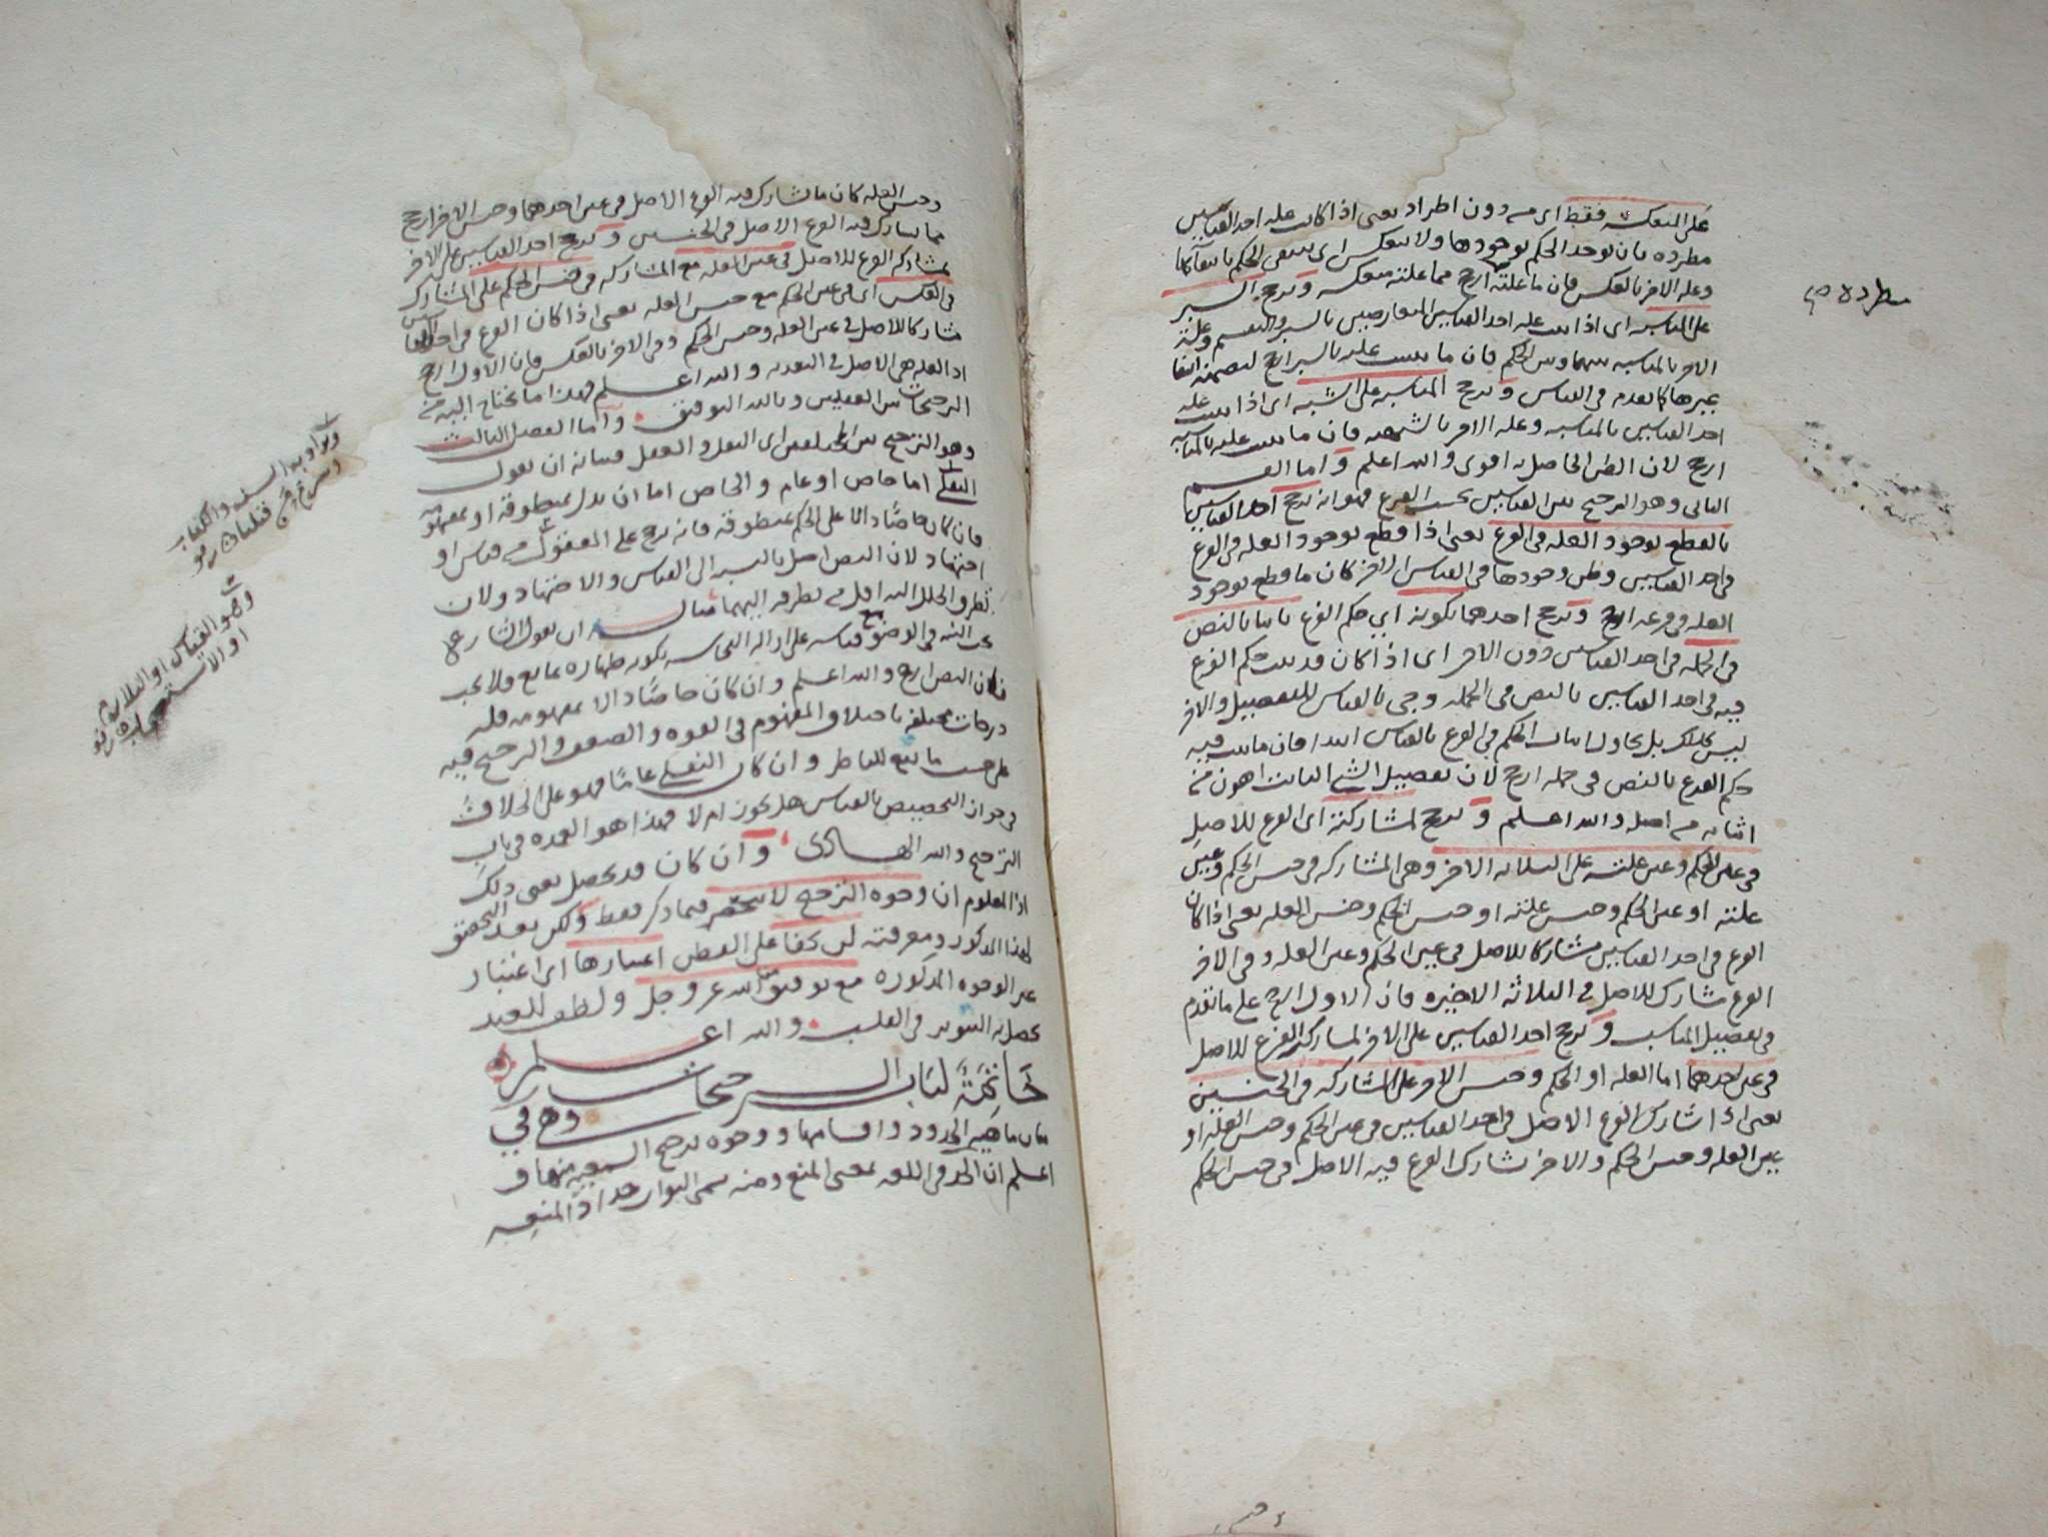 على المنعكسه فقط اى من دون اطراد يعنى اذا كانت عله احد القياسين
مطرده بان يوجد الحكم بوجودها ولا تنعكس اى ينتفى الحكم بانتفائها
وعله الاخر بالعكس فان ما علته ارجح مما علته منعكسه ويرجح السبر
على المناسبه اى اذا ثبت عليه احد القياسين المتعارضين بالسبر والتقسيم وعلته
الاخر بالمناسبه بينها وبين الحكم فان ما ثبتت عليه بالسبر ارجح لتضمنه انتفا
غيرها كما تقدم فى القياس ويرجح المناسبه على الشبه اى اذا ثبت عله
احد القياسين بالمناسبه وعله الاخر بالشبه فان ما ثبتت عليه بالمناسبه
ارجح لان الظن الحاصل به اقوى والله اعلم واما القسم
الثانى وهو الترجيح بين القياسين بحسب الفرع فهو انه يرجح احد القياسين
بالقطع بوجود العله فى الفرع يعنى اذا قطع بوجود العله فى الفرع
فى احد القياسين وظن وجودها فى القياس الاخر كان ما قطع بوجود
العله فى فرعه ارجح ويرجح احدهما بكونه اى حكم الفرع ثابتا بالنص
فى الجمله فى احد القياسين دون الاخر اى اذا كان قد ثبت حكم الفرع
فيه فى احد القياسين بالنص فى الجمله وجى بالقياس للتفصيل والاخر
ليس كذلك بل يحاول اثبات الحكم فى الفرع بالقياس ابتدا فان ما ثبت فيه
حكم الفرع بالنص فى جمله ارجح لان تفصيل الشى الثابت اهون من
اثباته من اصله والله اعلم ويرجح لمشاركته اى الفرع للاصل
فى عين الحكم وعين علته على الثلاثه الاخر وهى المشاركه فى جنس الحكم وعين
علته او عين الحكم وجنس علته او جنس الحكم وجنس العله يعنى اذا كان
الفرع فى احد القياسين مشاركا للاصل فى عين الحكم وعين العله وفى الاخر
الفرع شارك للاصل فى الثلاثه الاخيره فان الاول ارجح على ما تقدم
فى تفصيل المناسب ويرجح احد القياسين على الاخر لمشاركه الفرع للاصل
فى عين احدهما اما العله او الحكم وجنس الاخر على المشاركه فى الجنسين
يعنى اذا شارك الفرع الاصل فى احد القياسين فى عين الحكم وجنس العله او
عين العله وجنس الحكم والاخر شارك الفرع فيه الاصل فى جنس الحكم
مطرده
وجنس العله كان ما شارك فيه الفرع الاصل فى عين احدهما وجنس الاخر ارجح
مما شارك فيه الفرع الاصل فى الجنسين ويرجح احد القياسين على الاخر
بمشاركه الفرع للاصل فى عين العله مع المشاركه فى جنس الحكم على المشارك
فى العكس اى فى عين الحكم مع جنس العله يعنى اذا كان الفرع فى احد القياسين
مشاركا للاصل فى عين العله وجنس الحكم وفى الاخر بالعكس فان الاول ارجح
اذ العله هى الاصل فى التعديه والله اعلم فهذا ما يحتاج اليه من
الترجيحات بين العقليين وبالله التوفيق واما الفصل الثالث
وهو الترجيح بين المختلفين اى النقل والعقل فبيانه ان نقول
النقلى اما خاص او عام والخاص اما ان يدل بمنطوقه او بمفهومه
فان كان خاصا دالا على الحكم بمنطوقه فانه يرجح على المعقول من قياس او
اجتهاد لان النص اصل بالنسبه الى القياس والاجتهاد ولان
تطرق الخلل اليه اقل من تطرقه اليهما مثاله ان يقول الشارع
تجب النيه فى الوضوء مع قياسه على ازاله النجاسه بكونه طهاره بمايع فلا تجب
فان النص ارجح والله اعلم وان كان خاصا دالا بمفهومه فله
درجات مختلفه باختلاف المفهوم فى القوه والضعف والترجيح فيه
على حسب ما يقع للناظر وان كان النقلى عاما فهو على الخلاف
فى جواز التخصيص بالقياس هل يجوز ام لا فهذا هو العمده فى باب
الترجيح والله الهادى وان كان قد يحصل بغير ذلك
اذ المعلوم ان وجوه الترجيح لا تنحصر فيما ذكر فقط ولكن بعد التحقق
لهذا المذكور ومعرفته لن يخفا على الفطن اعتبارها اى اعتبار
غير الوجوه المذكوره مع توفيق من الله عز وجل ولطف للعبد
يحصل به التنوير فى القلب والله اعلم
خاتمة لباب الترجيحات وهى فى
بيان ماهيه الحدود واقسامها ووجوه ترجيح السمعيه منها و
اعلم ان الحد فى اللغه بمعنى المنع ومنه سمى البواب حدادا لمنعه
ويراد به السنه والكتاب
وهو القياس او التلازم
او الاستصحاب